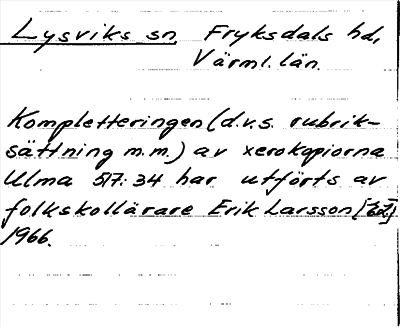 Lysviks sn, Fryksdals hd,
Värml. län.
Kompletteringen (d.v.s. rubrik-
sättning m.m.) av xerokopiorna
Ulma 517:34 har utförts av
folkskollärare Erik Larsson
1966.